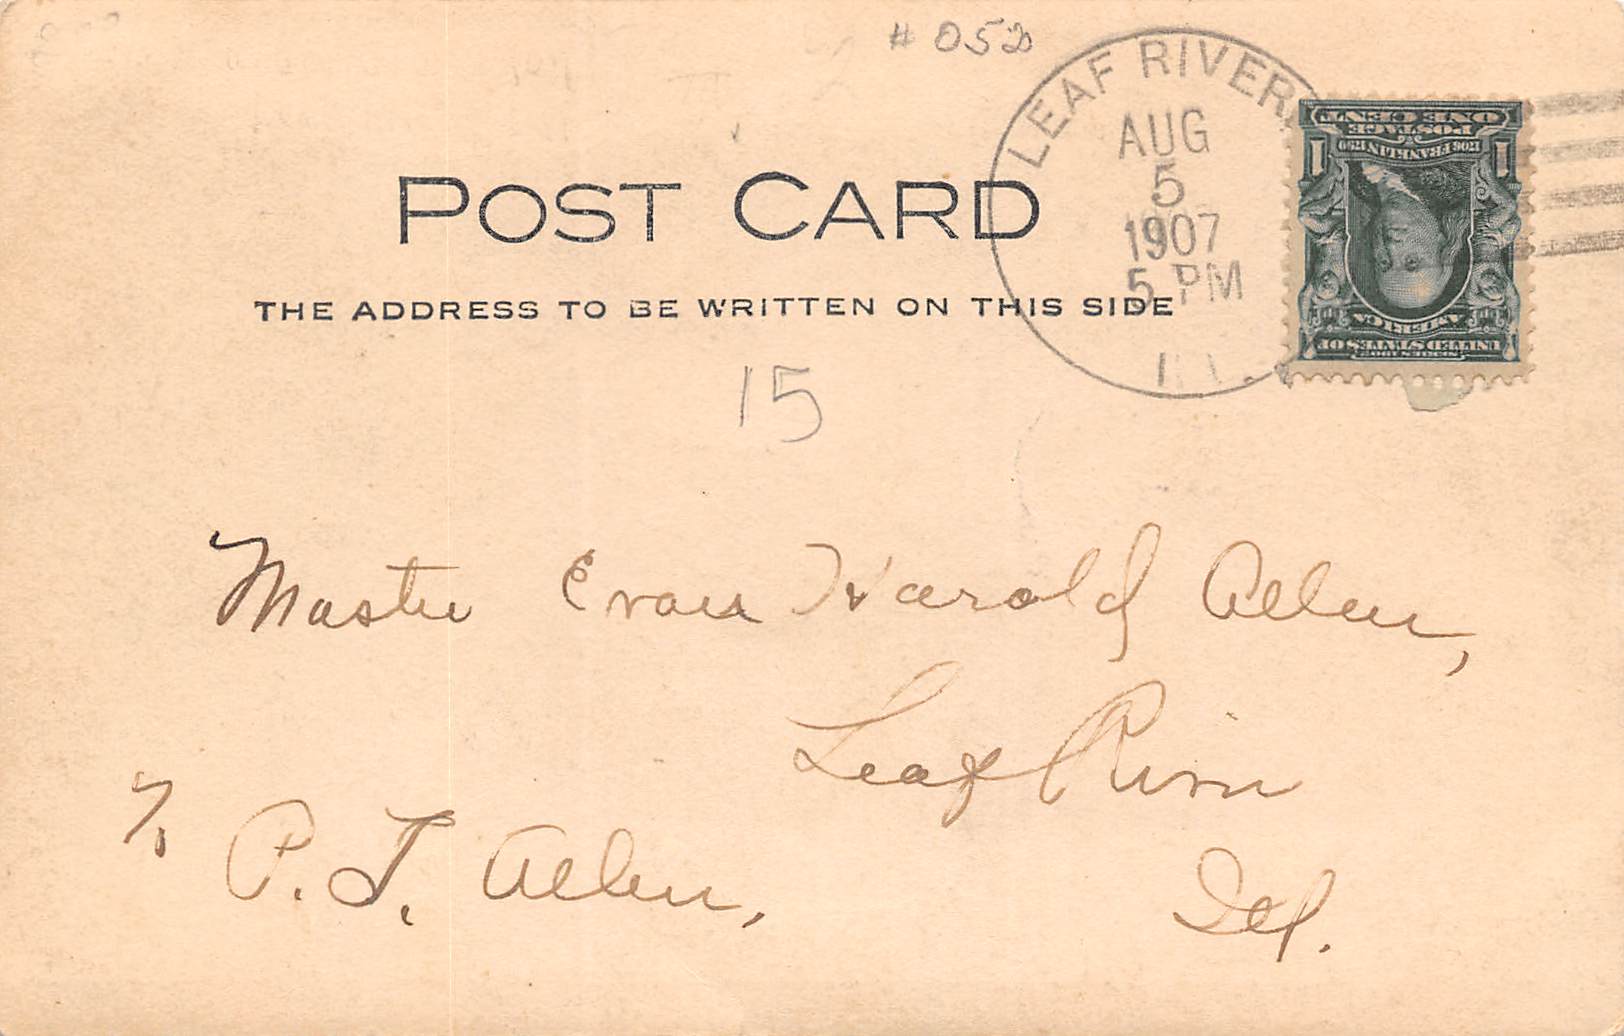 # 052
LEAF RIVER
AUG
5
1907
5 PM
ILL.
ONE CENT
POSTAGE
1706 FRANKLIN 1790
1 1
AMERICA
UNITED STATES OF
SERIES 1902
POST CARD
THE ADDRESS TO BE WRITTEN ON THIS SIDE
15
Master Evan Harold Allen,
Leaf River
Ill.
P. T. Allen,